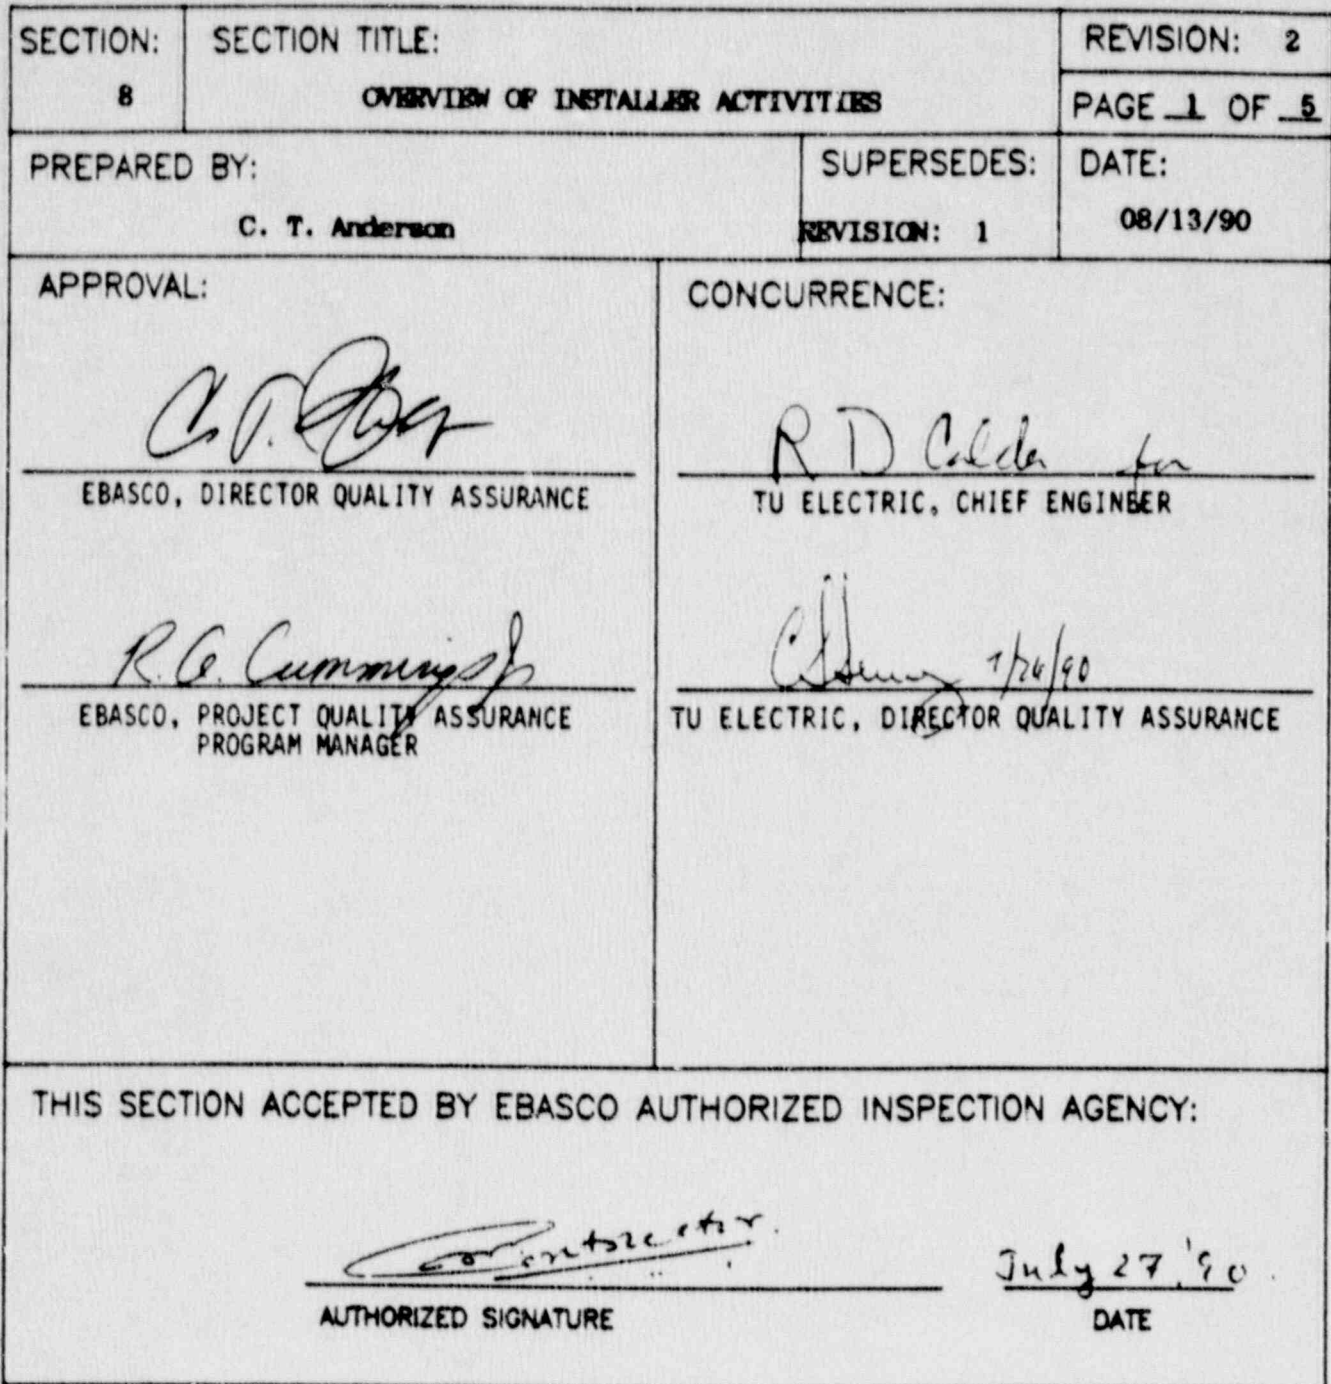 SECTION:
8
SECTION TITLE:
OVERVIEW OF INSTALLER ACTIVITIES
REVISION: 2
PAGE 1 OF 5
PREPARED BY:
C. T. Anderson
SUPERSEDES:
REVISION: 1
DATE:
08/13/90
APPROVAL:
EBASCO, DIRECTOR QUALITY ASSURANCE
R. A. Cummings Jr
EBASCO, PROJECT QUALITY ASSURANCE
PROGRAM MANAGER
CONCURRENCE:
R D Calder for
TU ELECTRIC, CHIEF ENGINEER
7/26/90
TU ELECTRIC, DIRECTOR QUALITY ASSURANCE
THIS SECTION ACCEPTED BY EBASCO AUTHORIZED INSPECTION AGENCY:
AUTHORIZED SIGNATURE
July 27, '90
DATE